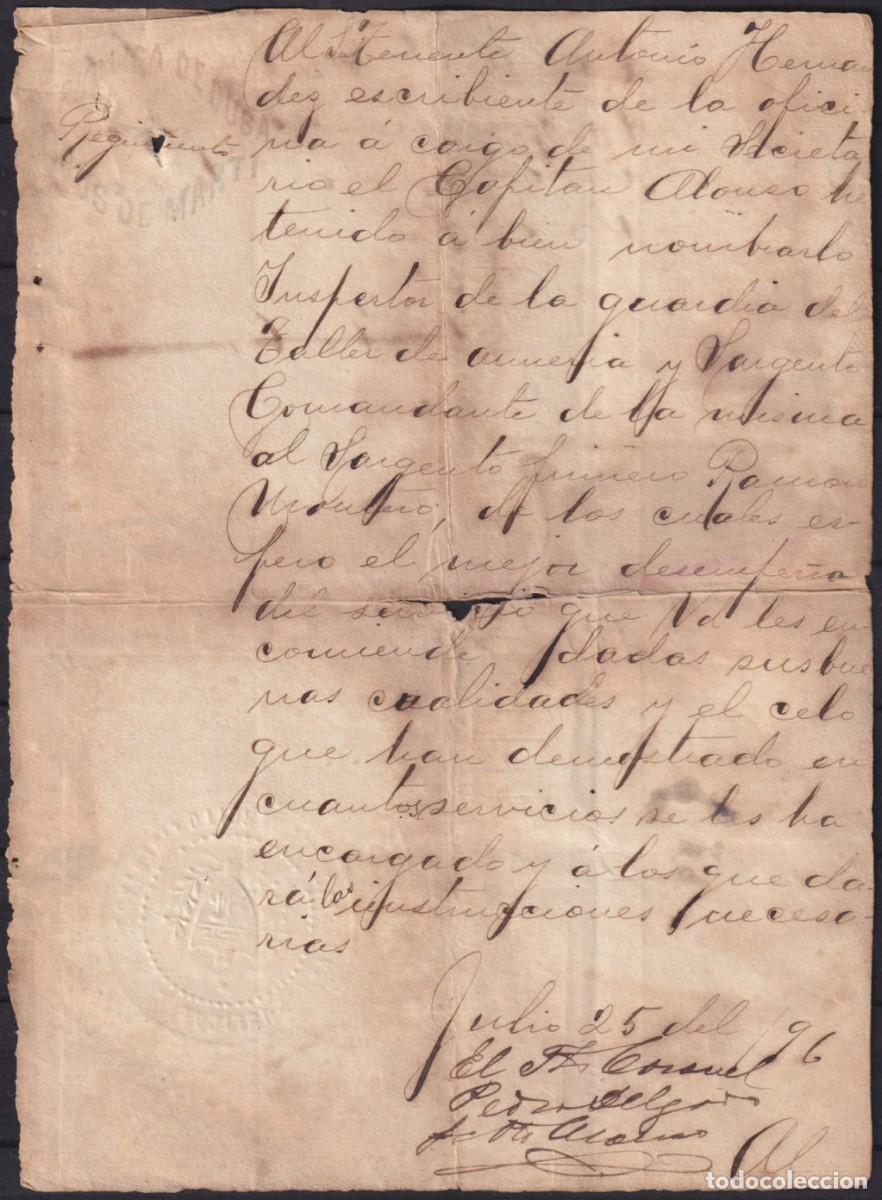 Al Teniente Antonio Hernan
dez escribiente de la ofici
Regimiento
na á cargo de mi Secreta
rio el Capitan Alonso he
DE MARTI
tenido á bien nombrarlo
Inspector de la guardia del
Taller de armeria y Sargento
Comandante de la misma
al Sargento primero Ramon
de los cuales es-
pero el mejor desempeño
del servicio que Vd les en
comiende dadas sus bue
nas cualidades y el celo
que han demostrado en
cuantos servicios se les ha
encargado y á los que da
rá las instrucciones necesa
rias
Julio 25 del 96
El Tte Coronel
Pedro Delgado
Alonso
Al
todocoleccion